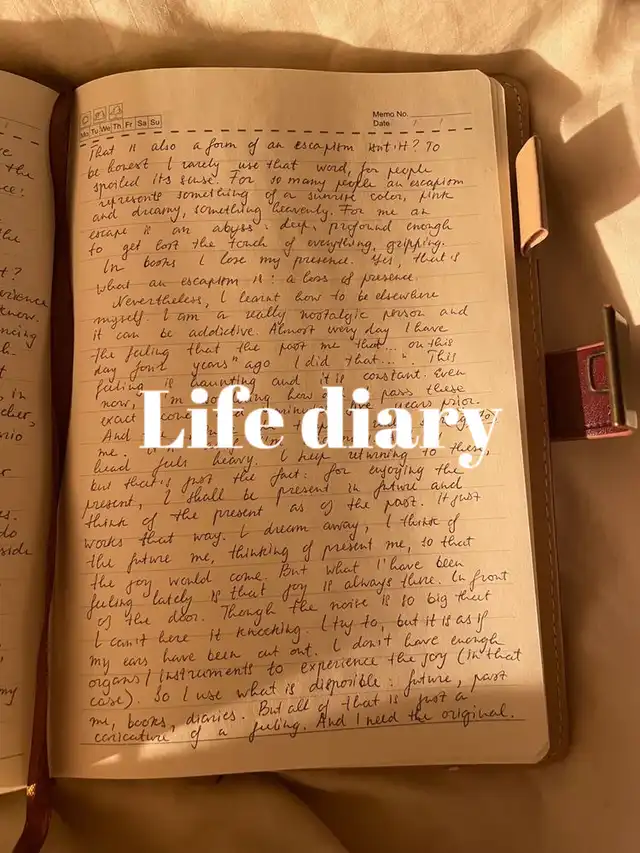 Memo No.
Date
Mo Tu We Th Fr Sa Su
That is also a form of an escapism isn't it? To
be honest I rarely use that word, for people
spoiled its sense. For so many people an escapism
represents something of a sunrise color, pink
and dreamy, something heavenly. For me an
escape is an abyss: deep, profound enough
to get lost the touch of everything, gripping.
In books I lose my presence. Yes, that is
what an escapism is: a loss of presence.
Nevertheless, I learnt how to be elsewhere
myself. I am a really nostalgic person and
it can be addictive. Almost very day I have
the feeling that the past me that... "on this
day four years" ago I did that...". This
feeling is haunting and it is constant. Even
now, I'm how pass these
exact years prior.
And
Life diary
me.
head feels heavy. I keep returning to these,
but that's just the fact: for enjoying the
present, I shall be present in future and
think of the present as of the past. It just
works that way. I dream away, I think of
the future me, thinking of present me, so that
the joy would come. But what I have been
feeling lately is that joy is always there. In front
of the door. Though the noise is so big that
I can't here it knocking. I try to, but it is as if
my ears have been cut out. I don't have enough
organs/instruments to experience the joy (in that
case). So I use what is disposible: future, past
me, books, diaries. But all of that is just a
caricature of a feeling. And I need the original.